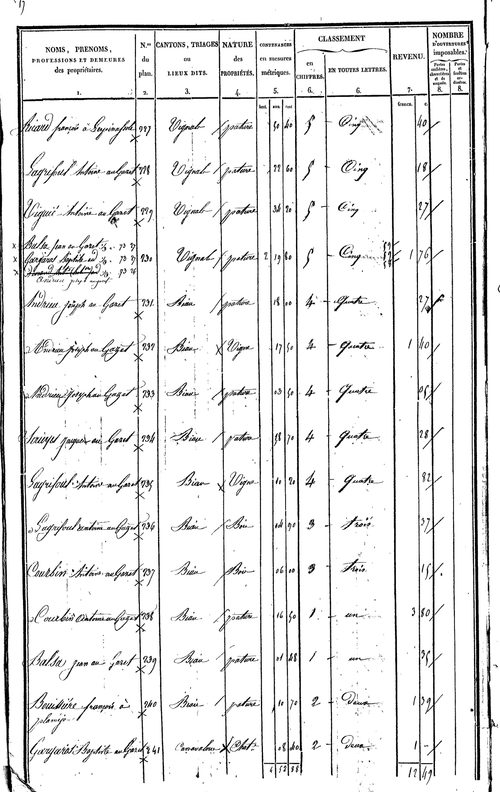 NOMS, PRENOMS,
PROFESSIONS ET DEMEURES
des propriétaires.
N.os
du
plan.
CANTONS, TRIAGES
ou
LIEUX DITS.
NATURE
des
PROPRIÉTÉS.
CONTENANCES
en mesures
métriques.
CLASSEMENT
en
CHIFFRES.
EN TOUTES LETTRES.
REVENU.
NOMBRE
D'OUVERTURES
imposables.
1. 2. 3. 4. 5. 6. 6. 7. 8. 8.
francs. c.
Ricard françois à 227 Vignal pature 50 40 5 Cinq 40
Lagrifoul Antoine au Garet 228 Vignal pature 22 60 5 Cinq 18
Viguié Antoine au Garet 229 Vignal pature 34 20 5 Cinq 27
Balsa jean au Garet
230 Vignal pature 2 19 80 5 Cinq 1 76
Andrieu joseph au Garet 231 Biau pature 18 00 4 Quatre 27
Andrieu joseph au Gazet 232 Biau Vigne 17 50 4 Quatre 1 40
Andrieu Joseph au Gazet 233 Biau pature 03 50 4 Quatre 05
jacques au Garet 234 Biau pature 58 70 4 Quatre 28
Lagrifoul Antoine au Garet 235 Biau Vigne 10 20 4 Quatre 82
Lagrifoul antoine au Gazet 236 Biau Bois 04 90 3 trois 37
Courbin Antoine au Garet 237 Biau Bois 06 00 3 trois 15
Courbin antoine au Gazet 238 Biau pature 16 50 1 un 3 80
Balsa jean au Garet 239 Biau pature 01 48 1 un 35
Bouissière françois à 240 Biau pature 10 70 2 Deux 1 39
Baptiste au Garet 241 Chat. 08 40 2 deux 1 -
6 53 88 12 49